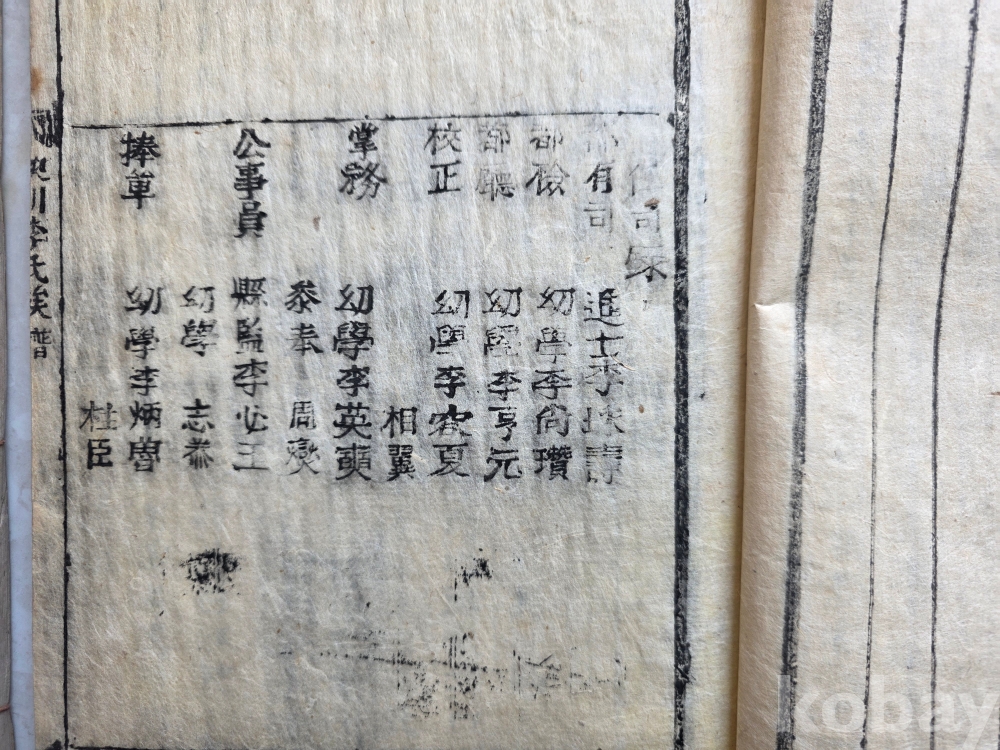 有司錄
都有司 進士李
都檢 幼學李尙瓚
都廳 幼學李亨元
校正 幼學李夏
相翼
掌務 幼學李英
參奉 周燮
公事員 縣監李必王
幼學 志泰
捧單 幼學李炳曾
桂臣
川李氏族譜
kobay